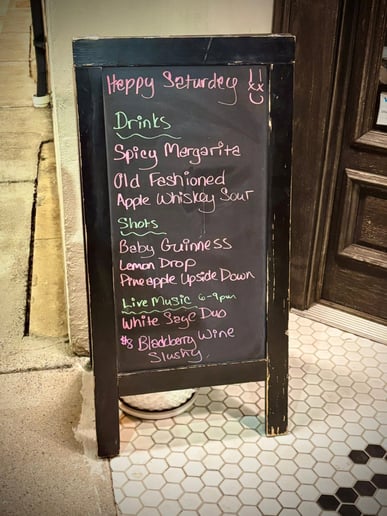 Happy Saturday!!
Drinks
Spicy Margarita
Old Fashioned
Apple Whiskey Sour
Shots
Baby Guinness
Lemon Drop
Pineapple Upside Down
Live Music 6-9pm
White Sage Duo
$8 Blackberry Wine
Slushy